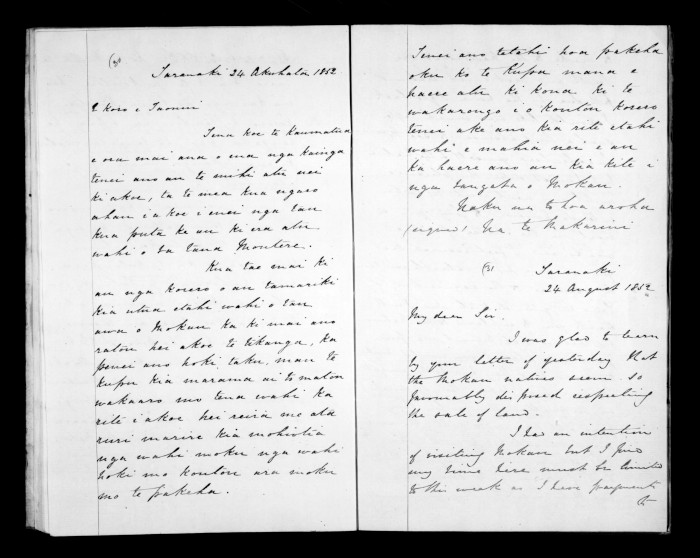 Taranaki 24 Akuhata 1852
E koro e Taonui
Tena koe te kaumatua
e ora mai ana o ena nga kainga
tenei ano au te mihi atu nei
ki a koe, ta te mea kua ngaro
ahau i a koe i enei nga tau
kua puta ke au ki era atu
wahi o Sa Tana Montere.
Kua tae mai ki
au nga korero o au tamariki
kia utua etahi wahi o tau
awa o Mokau ka ki mai ano
ratou hei a koe te tikanga, ka
penei ano hoki taku. mau te
kupu kia marama ai to matou
wakaaro mo tena wahi ka
rite i a koe hei reira mo ata
ruri marire kia mohiotia
nga wahi moku nga wahi
hoki mo koutou ara moku
mo te pakeha.
Tenei ano tetahi hoa pakeha
oku ko te Kupa mana e
haere atu ki kona ki te
wakarongo i o koutou korero
tenei ake ano kia rite etahi
wahi e mahia nei e au
ka haere ano au kia kite i
nga tangata o Mokau.
Naku na to hoa aroha
(signed) Na te Makarini
(3)
Taranaki
24 August 1852
My dear Sir.
I was glad to learn
by your letter of yesterday that
the Mokau natives seem so
favorably disposed respecting
the sale of land.
I had an intention
of visiting Mokau but I find
my time here must be limited
to this week as I have payments